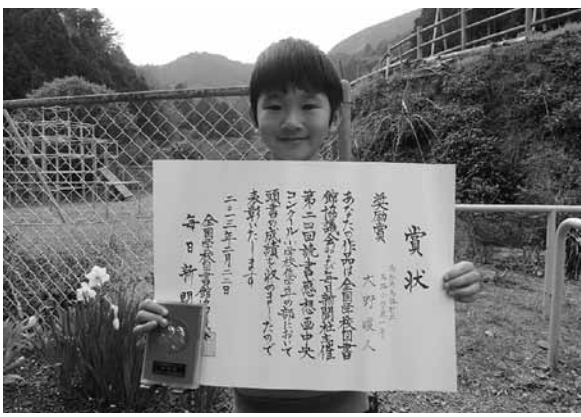 賞状
奨励賞
大野 暖人
あなたの作品は全国学校図書
館協議会および毎日新聞社主催
第二四回読書感想画中央
コンクール小学校低学年の部において
頭書の成績を収めましたので
表彰いたします
二〇一三年二月二二日
全国学校図書館
毎日新聞